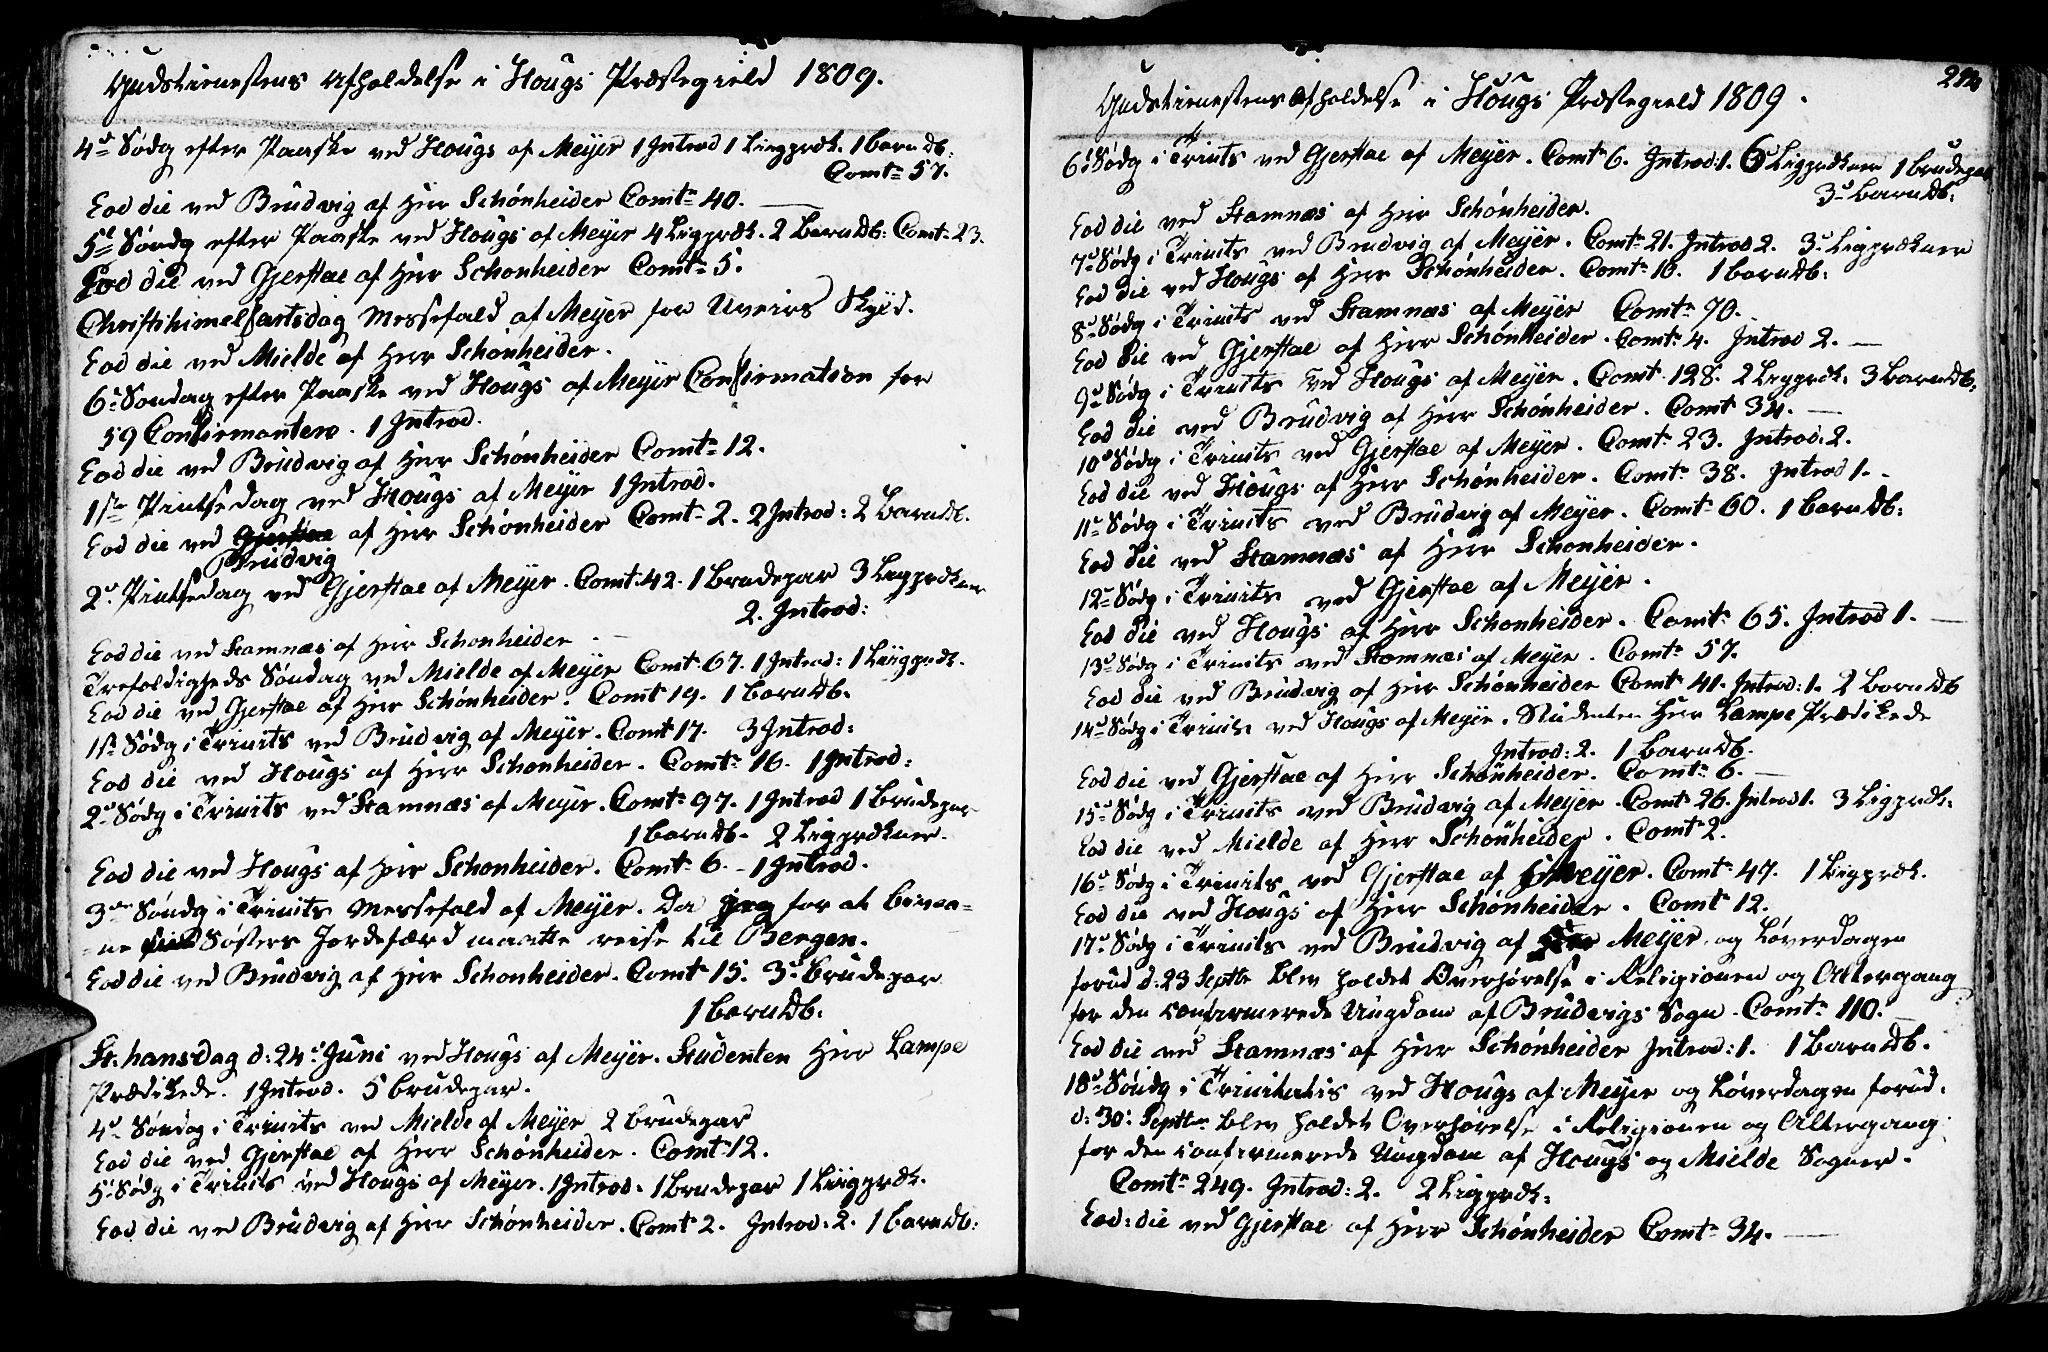 Gudstienestens Afholdelse i Hougs Præstegield 1809.
4de Sødg efter Paaske ved Hougs af Meyer 1 Introd 1 Liigpræk. 1 barndb:
Comte 57.
Eod die ved Brudvig af Herr Schønheider Comte 40.
5te Søndg efter Paaske ved Hougs af Meyer 4 Ligpræk. 2 Barndb: Comte 23.
Eod die ved Gjerstae af Herr Schønheider Comte 5.
Christihimelfartsdag Messefald af Meyer for Uveirs Skyld.
Eod die ved Mielde af Herr Schønheider.
6te Søndag efter Paaske ved Hougs af Meyer Confirmation for
59 Confirmantere. 1 Introd.
Eod die ved Brudvig af Herr Schønheider Comte 12.
1ste Pintsedag ved Hougs af Meyer 1 Introd.
Eod die ved Gjerstae af Herr Schønheider Comte 2. 2 Introd: 2 Barndb.
Brudvig
2d Pintsedag ved Gjerstae af Meyer. Comt: 42. 1 Brudepar 3 Ligprækner
2. Introd:
Eod die ved Stamnæs af Herr Schønheider.
Trefoldigheds Søndag ved Mielde af Meyer Comt 67. 1 Introd: 1 Liigpræk.
Eod die ved Gjerstae af Herr Schønheider. Comt 19. 1 barndb.
1ste Sødg i Trinits ved Brudvig af Meyer. Comt 17. 3 Introd:
Eod die ved Hougs af Herr Schønheider. Comte 16. 1 Introd:
2d Sødg i Trinits ved Stamnæs af Meyer. Comte 97. 1 Introd 1 Brudepar
1 barndb. 2 Ligprækner.
Eod die ved Hougs af Herr Schønheider. Comte 6. 1 Introd.
3die Søndg i Trinits Messefald af Meyer. Da jeg for at bivaa-
ne Søsters Jordefærd maatte reise til Bergen.
Eod die ved Brudvig af Herr Schønheider. Comt 15. 3 Brudepar
1 barndb.
St. hansdag d: 24de Juni ved Hougs af Meyer. Studenten Herr Lampe
Prædikede. 1 Introd. 5 brudepar.
4de Søndag i Trinits ved Mielde af Meyer 2 brudepar
Eod die ved Gjerstae af Herr Schønheider. Comte 12.
5te Sødg i Trinits ved Hougs af Meyer. 1 Introd. 1 Brudepar 1 Liigpræk.
Eod die ved Brudvig af Herr Schønheider. Comt 2. Introd: 2. 1 barndb:
Gudstienestens Afholdelse i Hougs Præstegield 1809.
6te Sødg i Trinits ved Gjerstae af Meyer. Comt 6. Introd: 1. 6 Ligprækner 1 brudepar
3 barndb.
Eod die ved Stamnæs af Herr Schønheider.
7de Sødg i Trinits ved Brudvig af Meyer. Comte 21. Introd 2. 3 Ligprækner
Eod die ved Hougs af Herr Schønheider. Comte 16. 1 barndb:
8de Sødg i Trinits ved Stamnæs af Meyer Comte 70.
Eod die ved Gjerstae af Herr Schønheider. Comte 4. Introd 2.
9de Sødg i Trinits ved Hougs af Meyer. Comt 128. 2 Ligpræk. 3 barndb.
Eod die ved Brudvig af Herr Schønheider. Comt 34.
10de Sødg i Trinits ved Gjerstae af Meyer. Comte 23. Introd. 2.
Eod die ved Hougs af Herr Schønheider. Comte 38. Introd 1.
11te Sødg i Trinits ved Brudvig af Meyer. Comte 60. 1 barndb:
Eod die ved Stamnæs af Herr Schønheider.
12te Sødg i Trinits ved Gjerstae af Meyer.
Eod die ved Hougs af Herr Schønheider. Comte 65. Introd 1.
13de Sødg i Trinits ved Stamnæs af Meyer. Comte 57.
Eod die ved Brudvig af Herr Schønheider Comte 41. Introd: 1. 2 barndb
14de Sødg i Trinits ved Hougs af Meyer. Studenten Herr Lampe Prædikede
Introd: 2. 1 barndb.
Eod die ved Gjerstae af Herr Schønheider. Comte 6.
15de Sødg i Trinits ved Brudvig af Meyer. Comte 26. Introd 1. 3 Ligpræk.
Eod die ved Mielde af Herr Schønheider. Comt 2.
16de Sødg i Trinits ved Gjerstae af Meyer. Comte 47. 1 Ligpræk.
Eod die ved Hougs af Herr Schønheider. Comte 12.
17de Sødg i Trinits ved Brudvig af Meyer og Løverdagen
forud d: 23 Septbr blev holdet Overhørelse i Religionen og Altergang
for den confirmerede Ungdom af Brudvigs Sogn. Comte 110.
Eod die ved Stamnæs af Herr Schønheider Introd: 1. 1 barndb.
18de Søndg i Trinitatis ved Hougs af Meyer og Løverdagen forud.
d: 30: Septbr blev holdet Overhørelse i Religionen og Altergang
for den confirmerede Ungdom af Hougs og Mielde Sogner.
Comte 249. Introd: 2. 2 Ligpræk:
Eod: die ved Gjerstae af Herr Schønheider Comte 34.